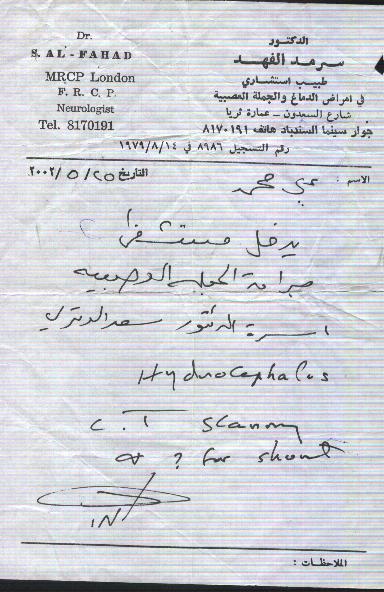 Dr.
S. AL-FAHAD
MRCP London
F. R. C. P.
Neurologist
Tel. 8170191
الدكتور
سرمد الفهد
طبيب استشاري
في امراض الدماغ والجملة العصبية
شارع السعدون – عمارة ثريا
جوار سينما السندباد هاتف ٨١٧٠١٩١
رقم التسجيل ٨٩٨٦ في ١٩٧٩/٨/١٤
الاسم :
محمد
التاريخ ٢٠٠٢/٥/٢٥
يدخل مستشفى
جراحة الجملة العصبية
الدكتور سعد الوتري
Hydrocephalus
C.T Scanning
& ? for shunt
الملاحظات :